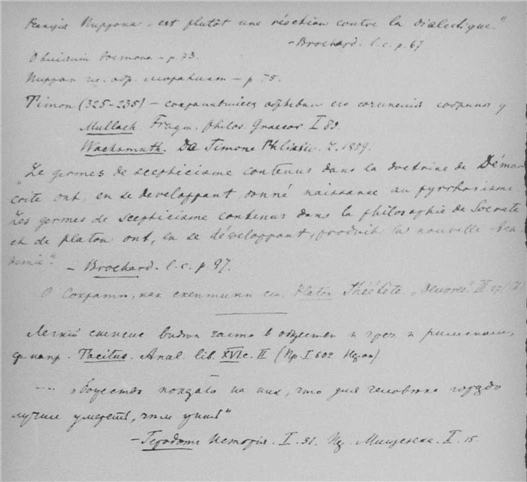 Пиррона „est plutôt une réaction contre la dialectique."
– Brochard. l. c. p. 67
p. 73.
Пиррон – p. 75.
Timon (325–235) – сохранившиеся его сочинения собраны у
Mullach Fragm. philos. Graecor I 83.
Wachsmuth. De Timone Phliasio. 1859.
„Le germes de scepticisme contenus dans la doctrine de Démo-
crite ont, en se developpant donné naissance au pyrrhonisme
Les germes de scepticisme contenus dans la philosophie de Socrate
et de platon ont, en se développant, produit la nouvelle Aca-
démie". – Brochard. l. c. p. 97.
О Сократе, как скептике см. Théétète „Oeuvres" II
Легкий скепсис виден часто в обществе и греч. и римском,
ср. напр. Tacitus. Anal. lib. XVI c. II
– ... божество показало на них, что для человека гораздо
лучше умереть, чем жить"
– Геродот История. I. 31. Мищенека. I. 15